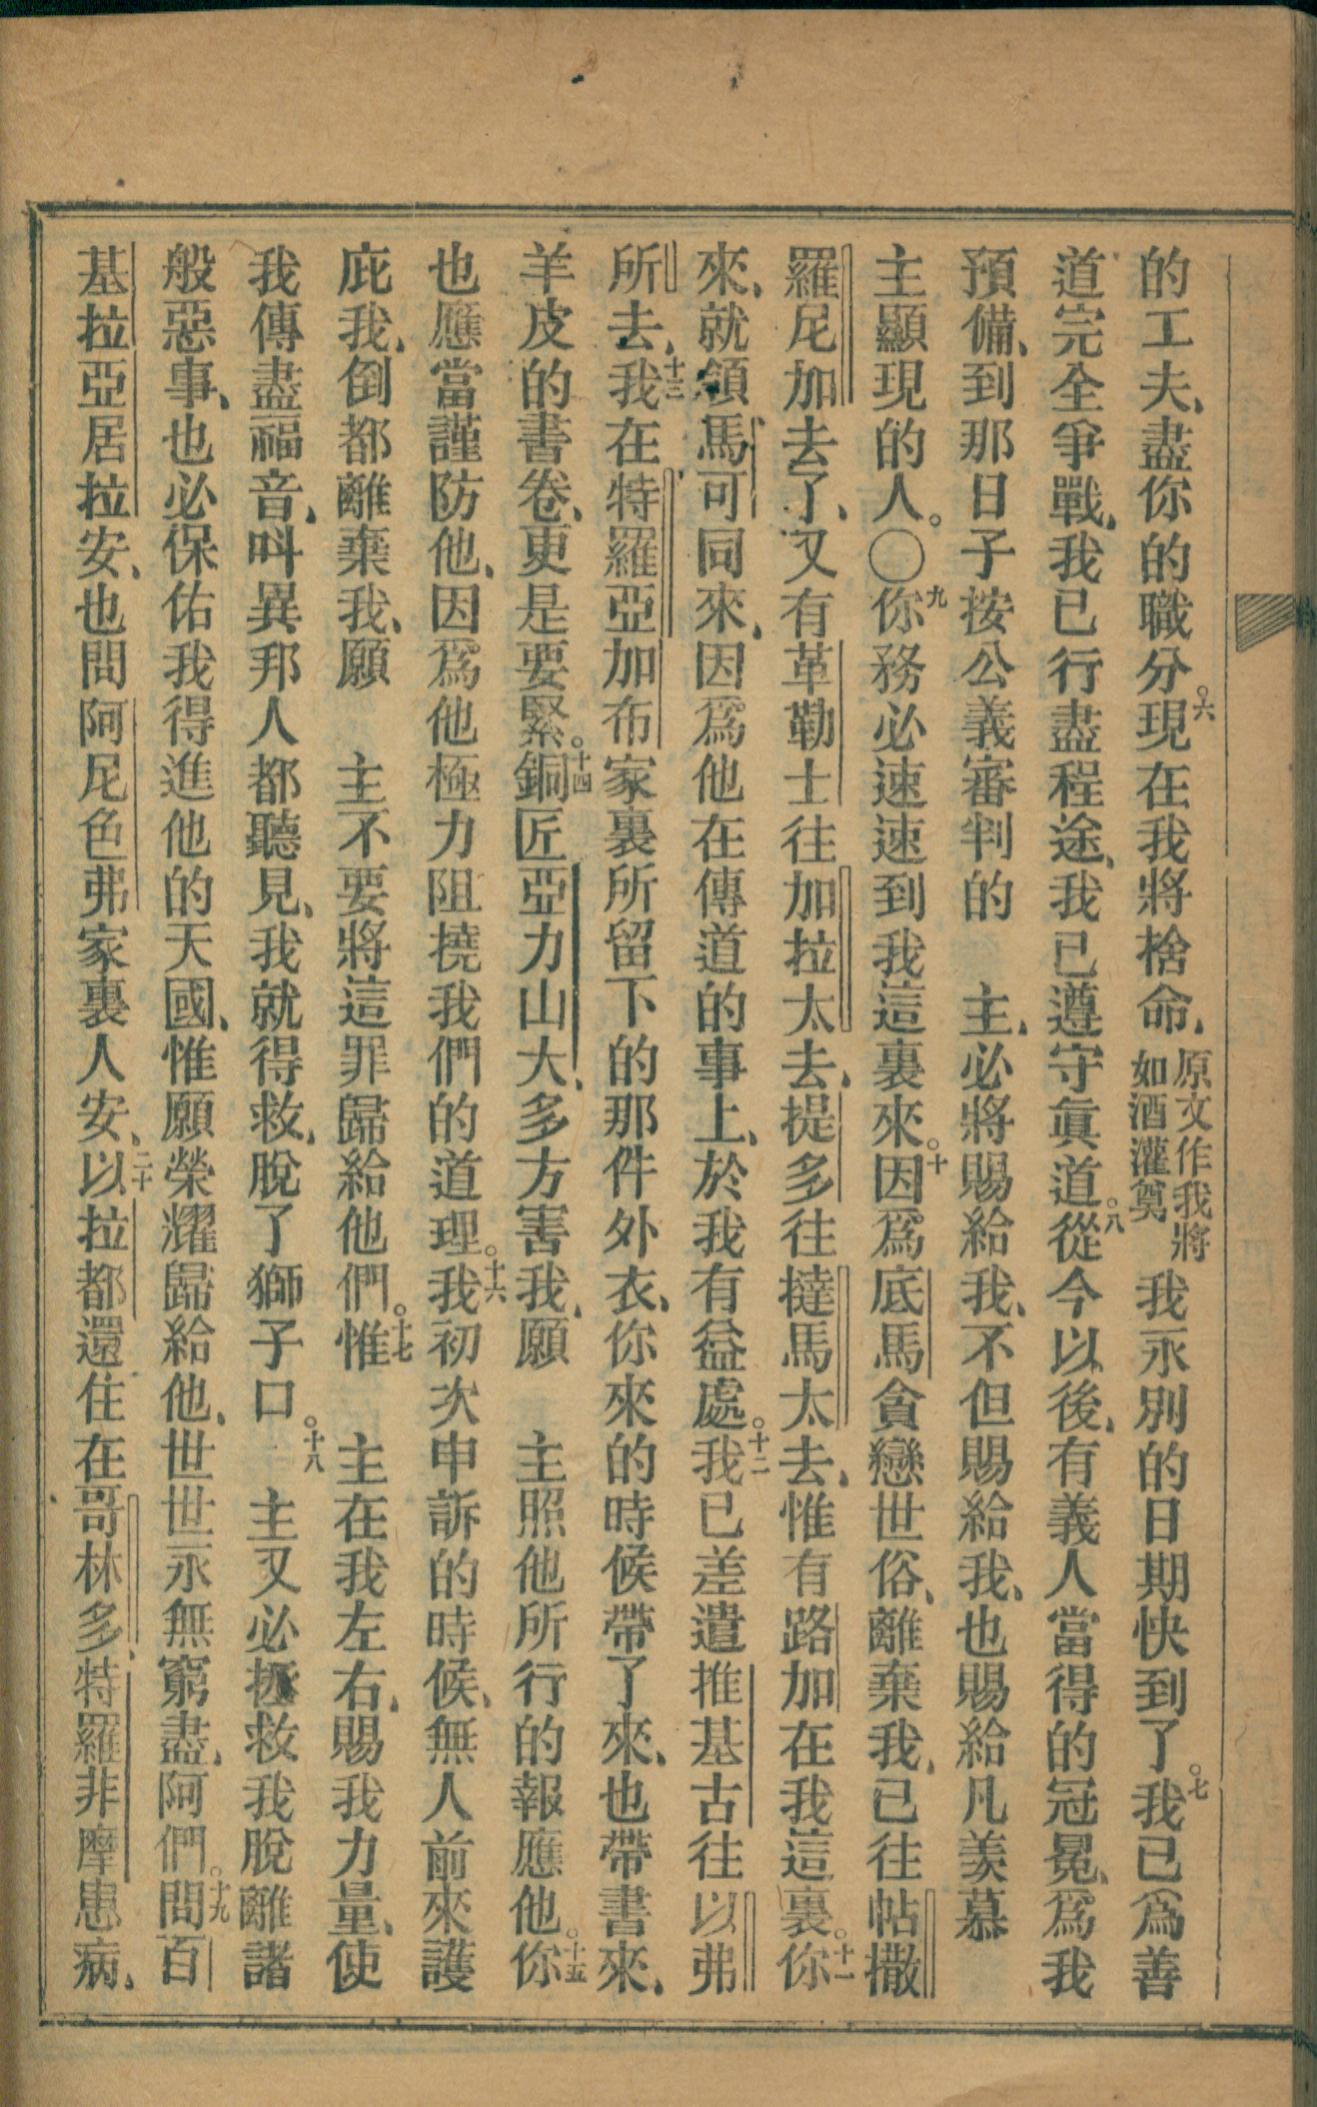 的工夫、盡你的職分。六現在我將捨命、原文作我將如酒灌奠我永別的日期快到了。七我已爲善
道完全爭戰、我已行盡程途、我已遵守眞道。八從今以後、有義人當得的冠冕、爲我
預備、到那日子按公義審判的　主、必將賜給我、不但賜給我、也賜給凡羨慕
主顯現的人。〇九你務必速速到我這裏來。十因爲底馬貪戀世俗、離棄我、已往帖撒
羅尼加去了、又有革勒士往加拉太去、提多往撻馬太去、惟有路加在我這裏。十一你
來、就領馬可同來、因爲他在傳道的事上、於我有益處。十二我已差遣推基古往以弗
所去、十三我在特羅亞加布家裏所留下的那件外衣、你來的時候帶了來、也帶書來、
羊皮的書卷、更是要緊。十四銅匠亞力山大、多方害我、願　主照他所行的報應他。十五你
也應當謹防他、因爲他極力阻撓我們的道理。十六我初次申訴的時候、無人前來護
庇我、倒都離棄我、願　主不要將這罪歸給他們。十七惟　主在我左右、賜我力量、使
我傳盡福音、呌異邦人都聽見、我就得救、脫了獅子口。十八　主又必拯救我脫離諸
般惡事、也必保佑我得進他的天國、惟願榮耀歸給他、世世永無窮盡、阿們。十九問百
基拉亞居拉安、也問阿尼色弗家裏人安、二十以拉都還住在哥林多、特羅非摩患病、